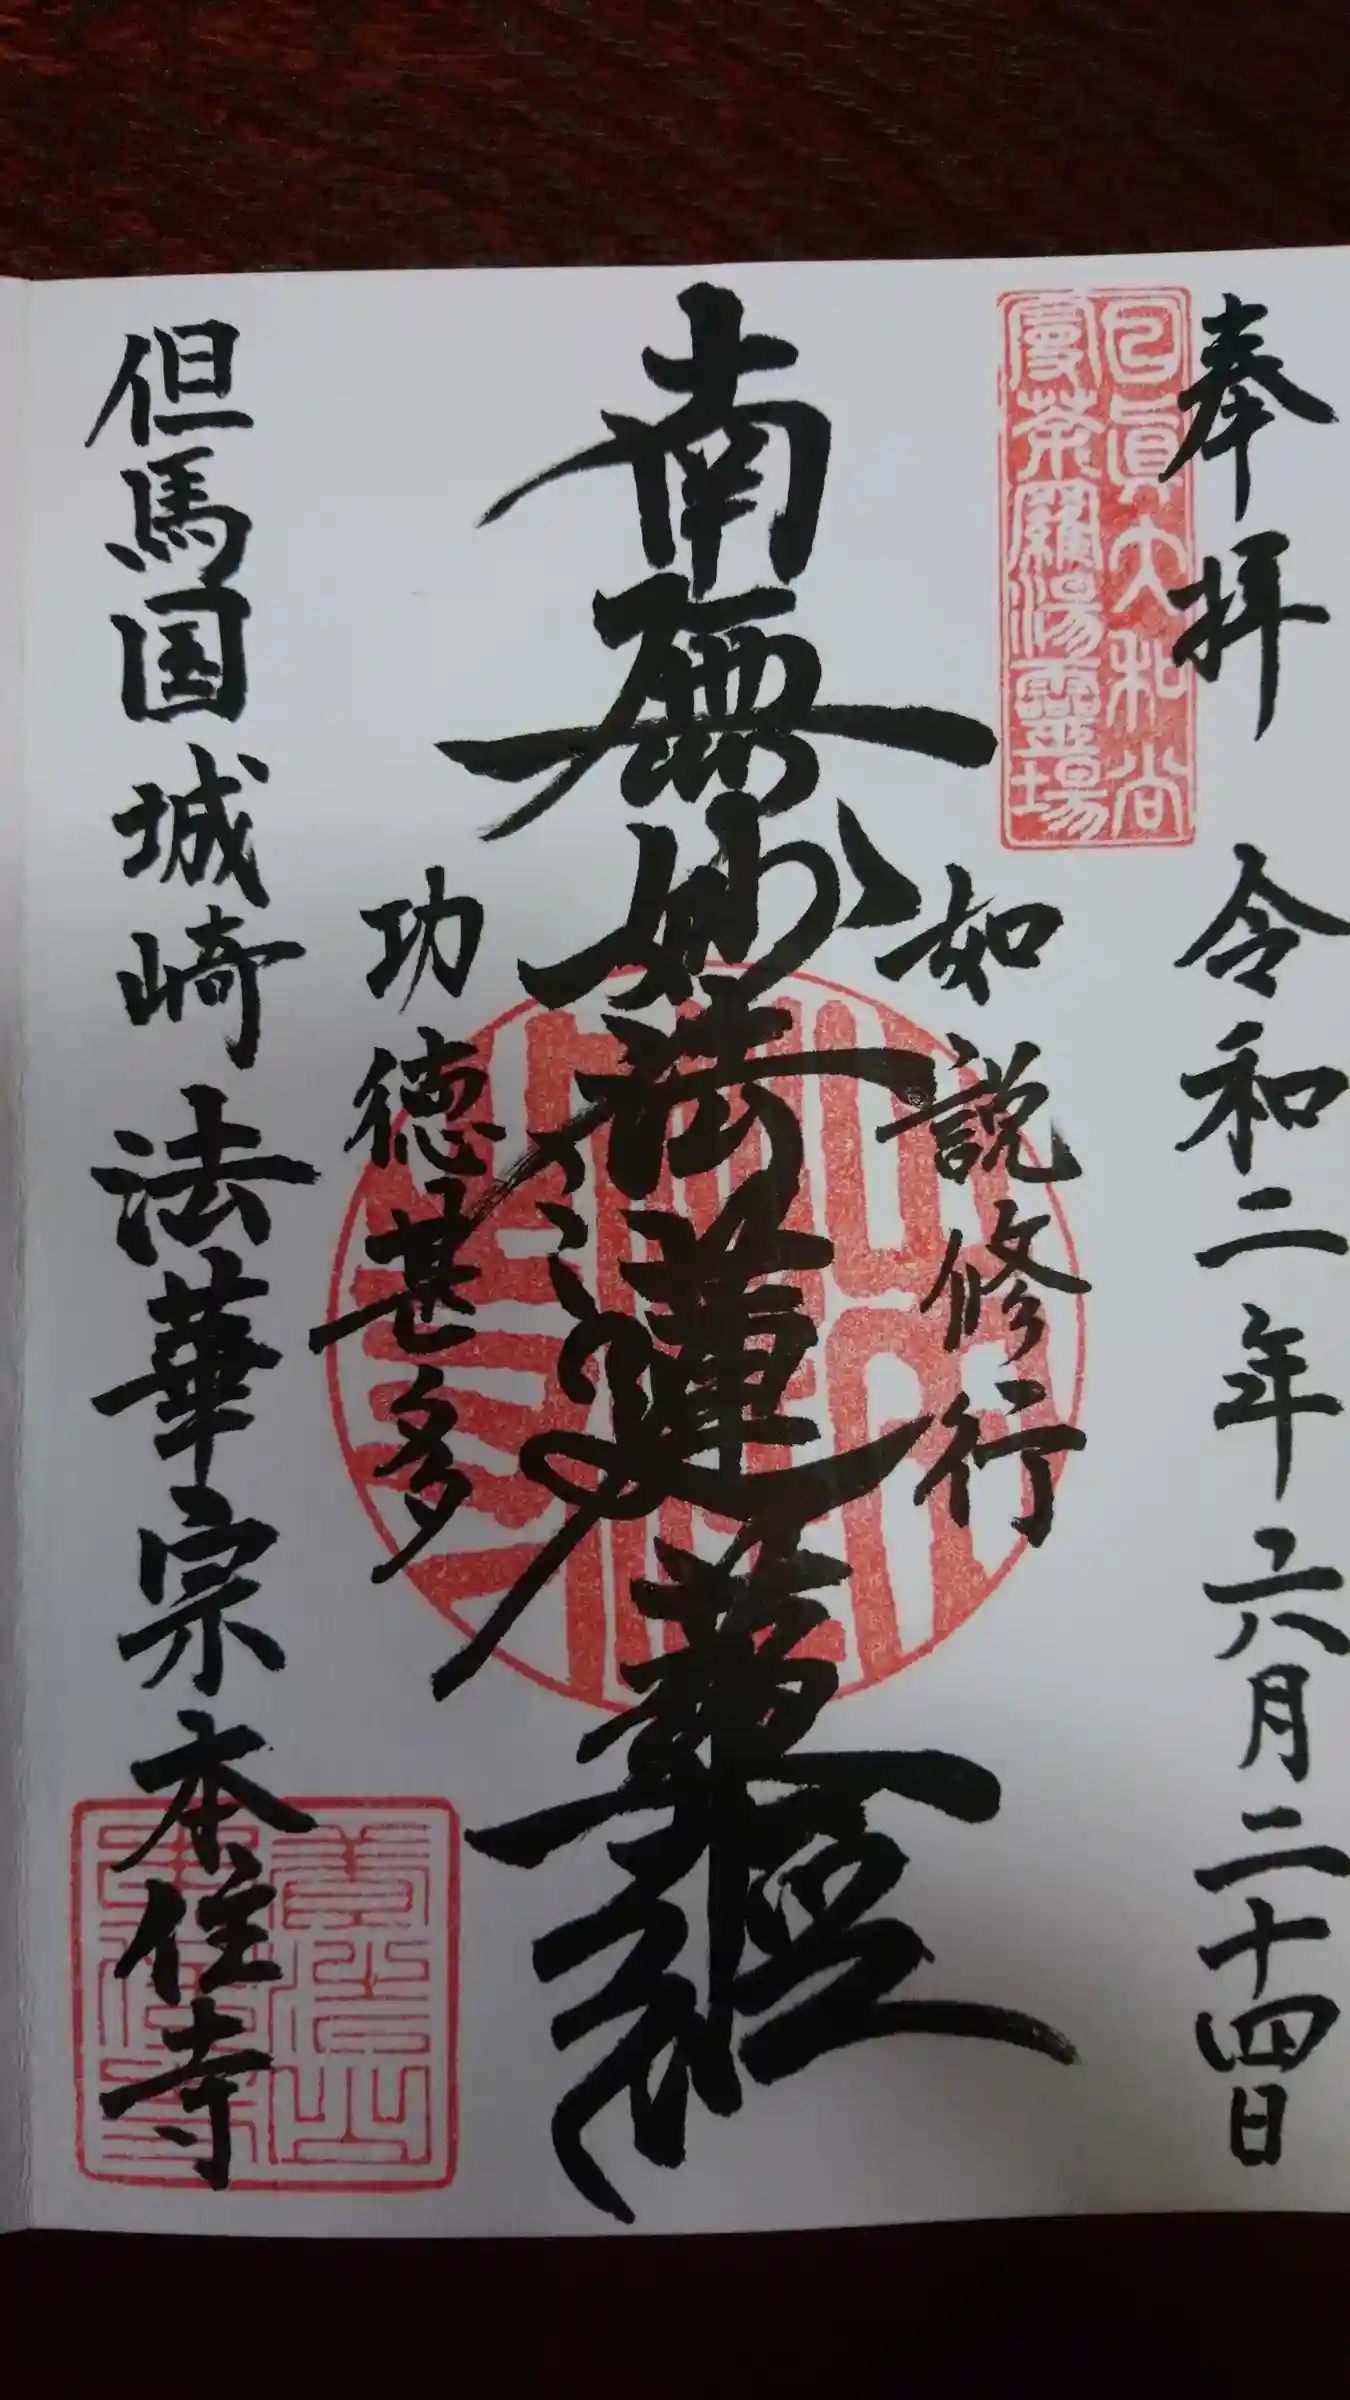 奉拝 令和二年六月二十四日
日眞大和尚
曼荼羅湯靈場
如説修行
南無妙法蓮華經
功徳甚多
但馬国城崎法華宗本住寺